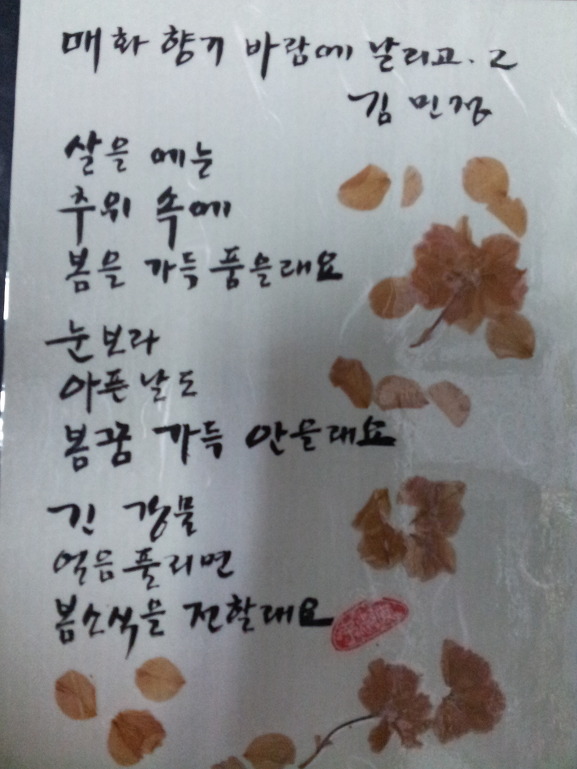 매화 향기 바람에 날리고. 2
김민정
살을 에는
추위 속에
봄을 가득 품을래요
눈보라
아픈 날도
봄꿈 가득 안을래요
긴 강물
얼음 풀리면
봄소식을 전할래요